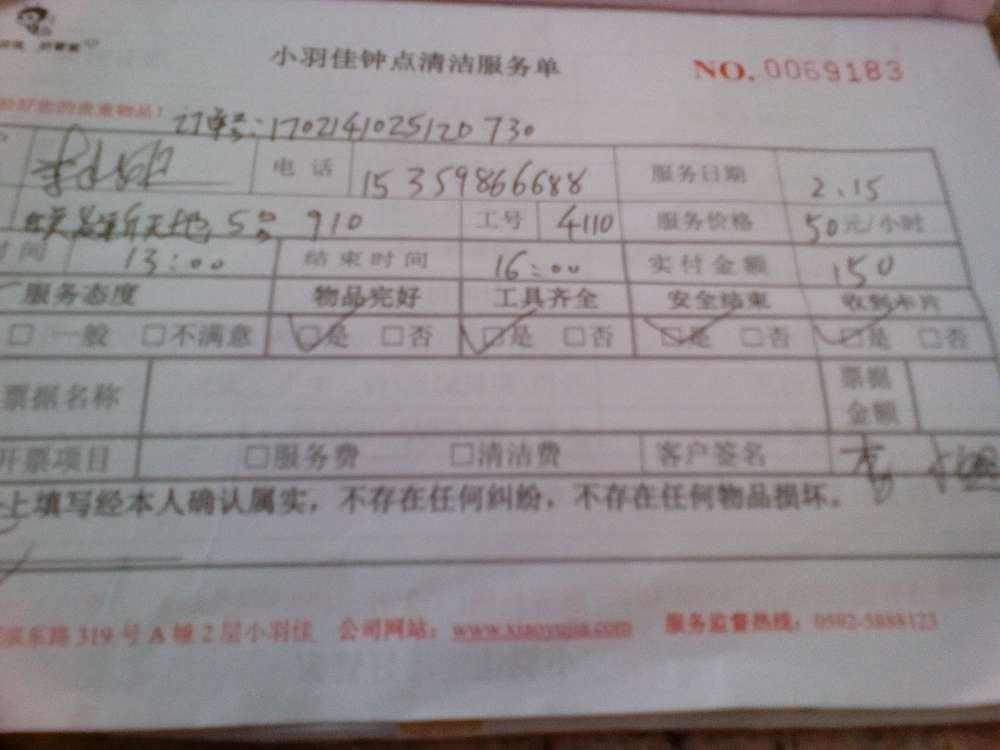 小羽佳钟点清洁服务单 NO. 0069183
好您的贵重物品！ 订单号：1702141025120730
电话 15359866688 服务日期 2.15
新天地 5号 910 工号 4110 服务价格 50元/小时
时间 13:00 结束时间 16:00 实付金额 150
服务态度 物品完好 工具齐全 安全结束 收到卡片
□一般 □不满意 □是 □否 □是 □否 □是 □否 □是 □否
票据名称 票据金额
开票项目 □服务费 □清洁费 客户签名
上填写经本人确认属实，不存在任何纠纷，不存在任何物品损坏。
滨东路319号A幢2层小羽佳 公司网站：www.xiaoyujia.com 服务监督热线：0592-5888123